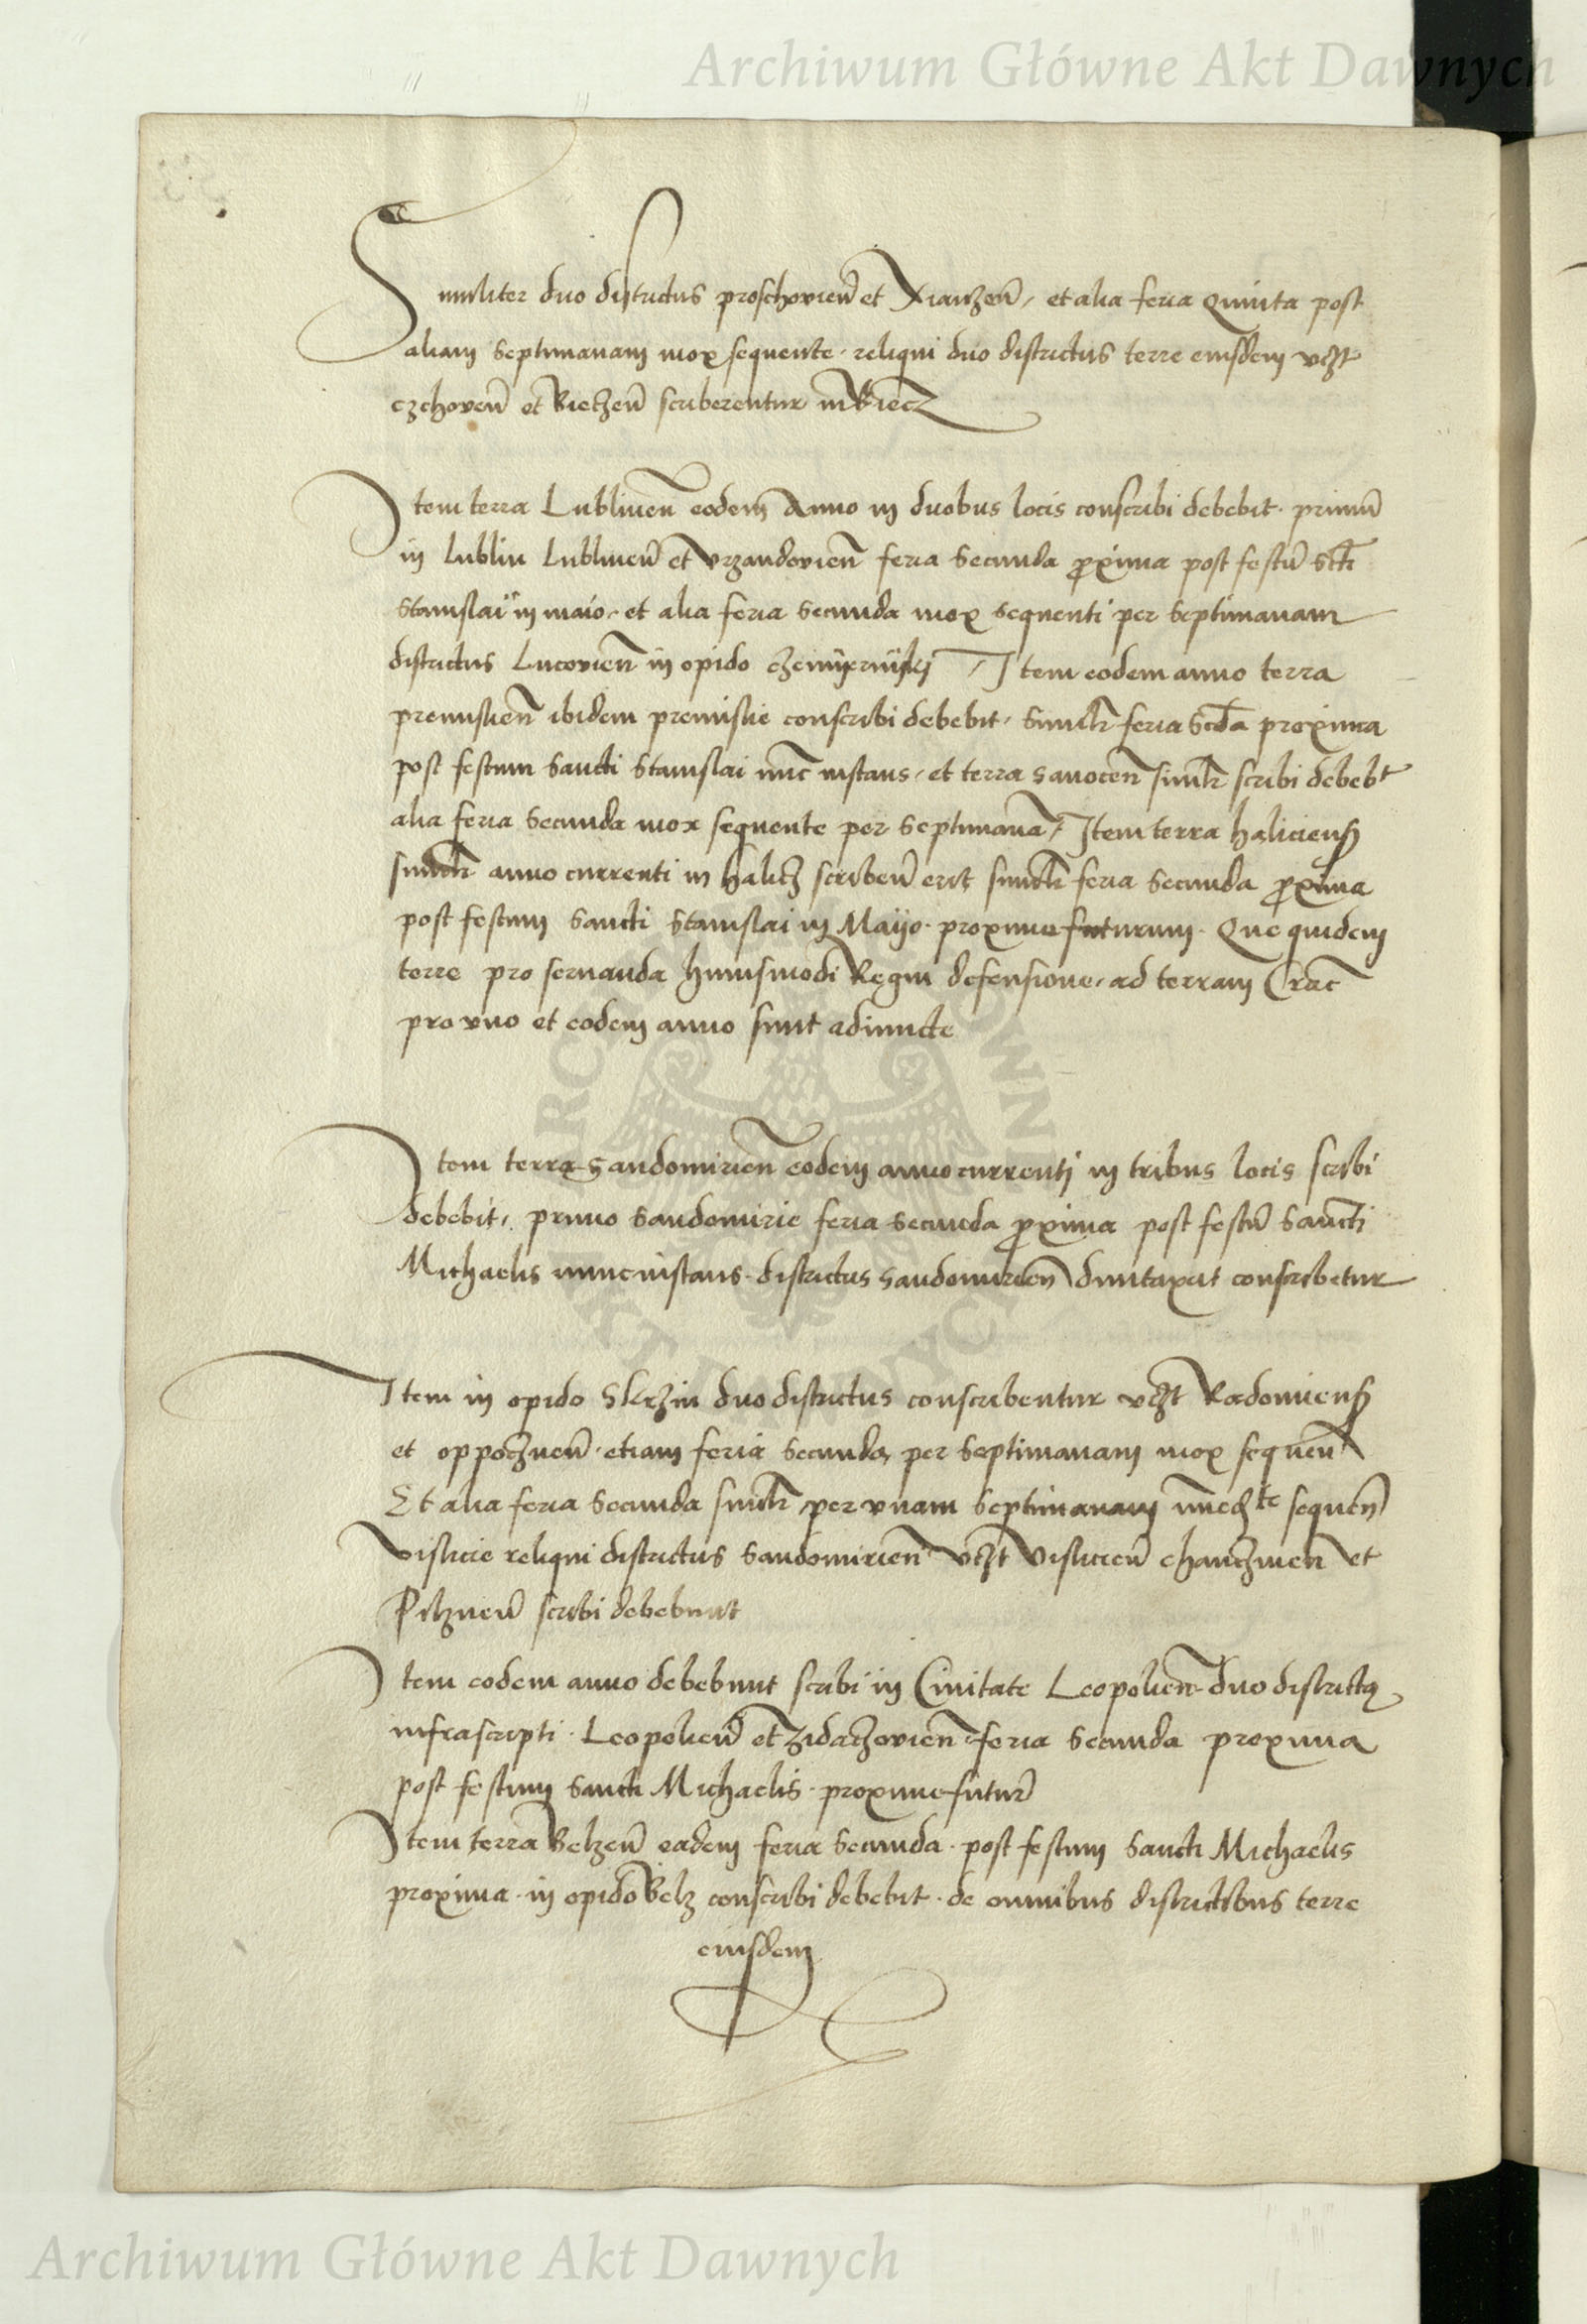 Archiwum Główne Akt Dawnych
Similiter duo districtus proschovien̄ et Xianzen̄, et alia feria quinta post
aliam septimanam mox sequente. reliqui duo districtus terre eiusdem vczt
czchovien̄ et Bieczen̄ scriberentur in Biecz
Item terra Lublinen̄ eodem Anno in duobus locis conscribi debebit. primū
in lublin lublinen̄ et vrzandovien̄ feria secunda proxima post festū Scti
Stanislai in maio. et alia feria secunda mox sequenti per septimanam
districtus Lucovien̄ in opido czemijernijkj / Item eodem anno terra
premislien̄ ibidem premislie conscribi debebit, similr̄ feria scd̄a proxima
post festum sancti Stanislai nūc instans, et terra sanocen̄ similr̄ scribi debebt
alia feria secunda mox sequente per septimanā, Item terra haliciensꝭ
similr̄ anno currenti in halicz scriben̄ erit similr̄ feria secunda proxima
post festum sancti Stanislai in Maijo. proxime futurum. Que quidem
terre pro servanda huiusmodi Regni defensione, ad terram Crac̄
pro vno et eodem anno sunt adiuncte
Item terra Sandomirien̄ eodem anno currentj in tribus locis scribi
debebit, primo Sandomirie feria secunda proxima post festū sancti
Michaelis nunc instans. districtus sandomirien̄ duntaxat conscribetur
Item in opido Skrzin duo districtus conscribentur vczt Radomiensꝭ
et oppocznen̄. etiam feria secunda, per septimanam mox sequen̄
Et alia feria secunda similr̄ per vnam septimanam īmedte sequen̄
vislicie reliqui districtus sandomirien̄ vczt vislicien̄ chanczinen̄ et
Pilznen̄ scribi debebunt
Item eodem anno debebunt scribi in Civitate Leopolien̄ duo districtꝰ
infrascripti. Leopolien̄ et zidaczovien̄ feria secunda proxima
post festum sancti Michaelis. proxime futur̄
Item terra Belzen̄ eadem feria secunda. post festum sancti Michaelis
proxima. in opido Belz conscribi debebit. de omnibus districtibus terre
eiusdem
Archiwum Główne Akt Dawnych